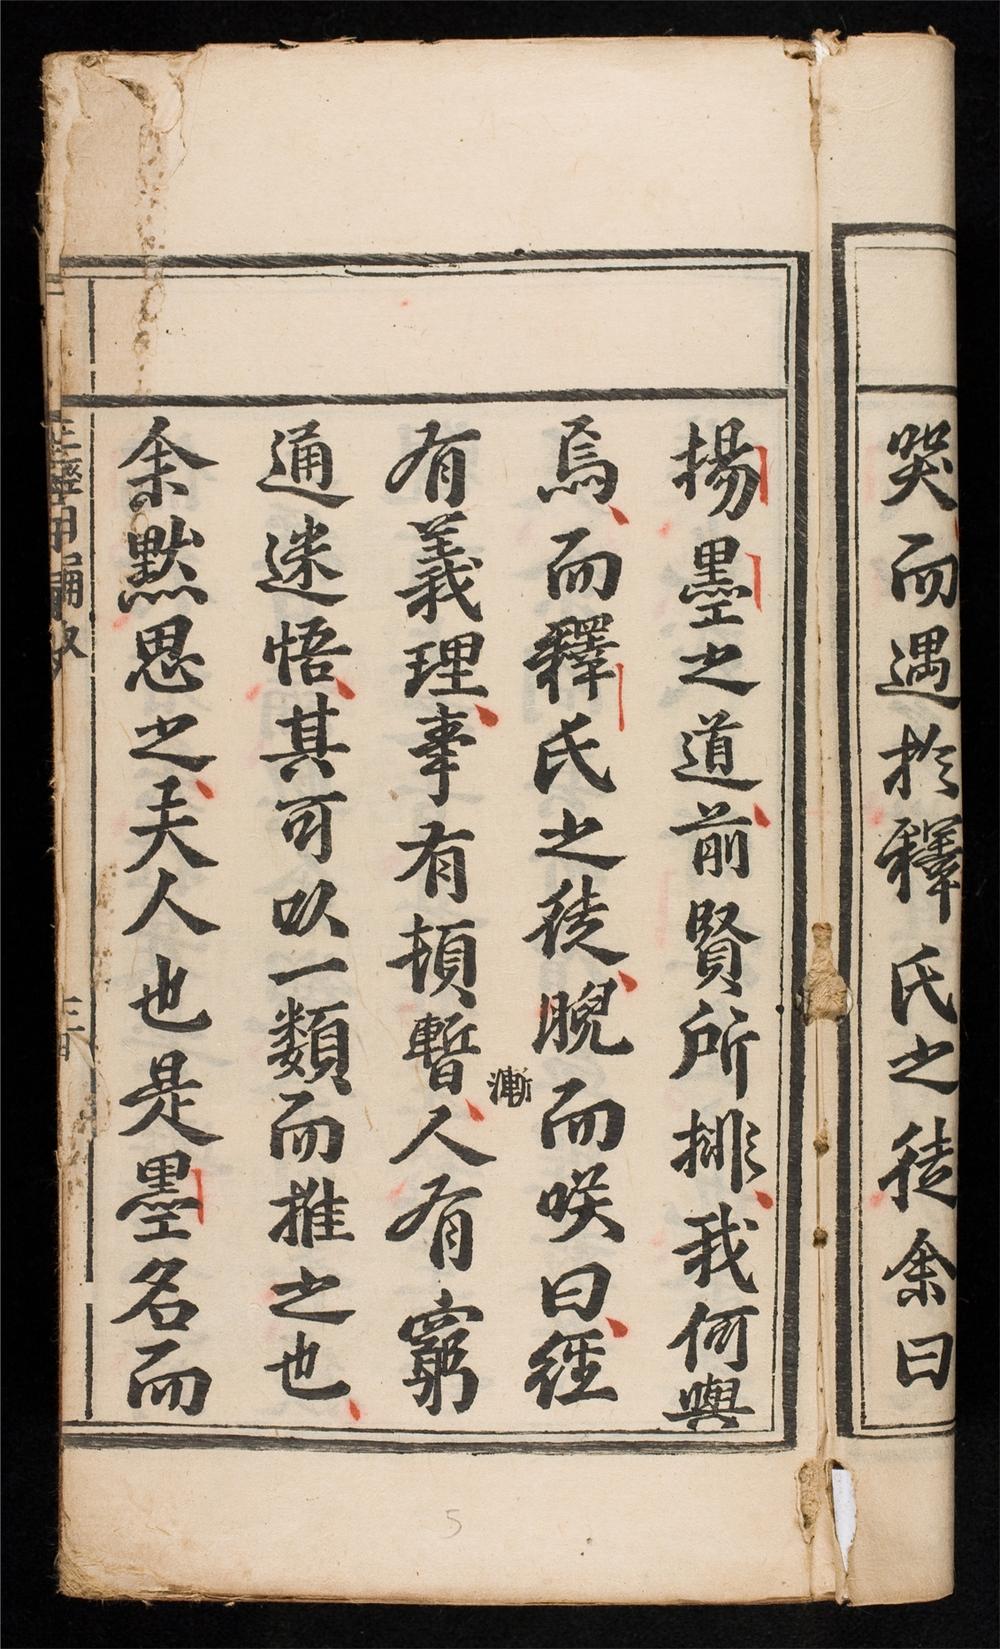 哭而遇扵釋氏之徒余曰
揚墨之道前賢所排我何與
焉而釋氏之徒睨而咲曰經
有義理事有頓暫人有窮
漸
通迷悟其可以一類而推之也
余黙思之夫人也是墨名而
三
5